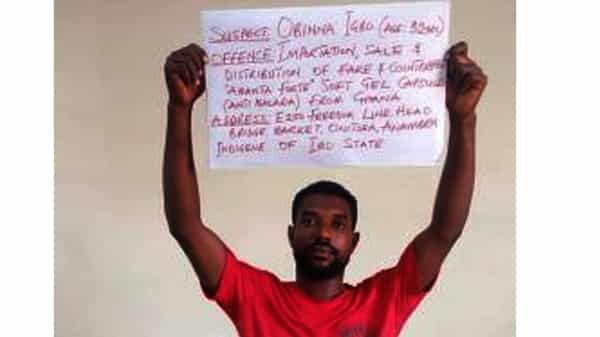 SUSPECT: OBINNA IGBO (AGE 32YRS)
OFFENCE IMPARTATION, SALE &
DISTRIBUTION OF FAKE & COUNTERFEIT
"AMANTA FORTE" SOFT GEL CAPSULE
(ANTI MALARIA) FROM GHANA
ADDRESS: E250 FREEDOM LINE HEAD
BRIDGE MARKET, ONITSHA, ANAMBRA
INDIGENE OF IMO STATE